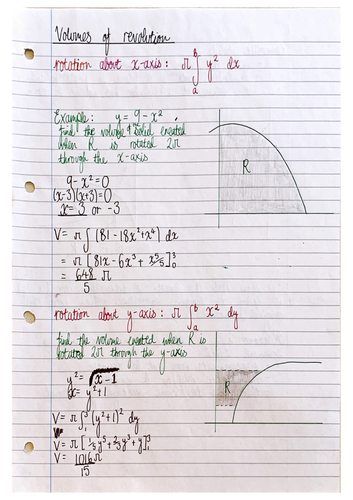 Volumes of revolution
rotation about x-axis: π∫ₐᵇ y² dx
Example: y = 9 - x².
Find the volume of solid created
when R is rotated 2π
through the x-axis
R
9 - x² = 0
(x-3)(x+3)=0
x = 3 or -3
V = π ∫ (81 - 18x² + x⁴) dx
= π [81x - 6x³ + x⁵/5]³₀
= 648/5 π
rotation about y-axis: π ∫ₐᵇ x² dy
find the volume created when R is
rotated 2π through the y-axis
R
y² = √x-1
x = y² + 1
V = π ∫₁³ (y²+1)² dy
V = π [⅕y⁵ + ⅔y³ + y]³₁
V = 1016π/15